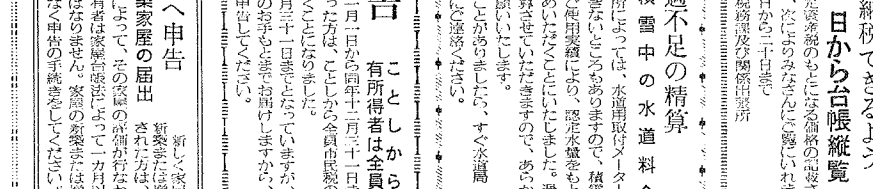 納税できるよう
日から台帳縦覧
定資産税のもとになる価格の記載さ
、次によりみなさんにご覧にいれま
日から二十日まで
税務課及び関係出張所
過不足の精算
積雪中の水道料金
所によっては、水道用取付メーター
きないところもありますので、積雪
ご使用実績により、認定水量をもと
めいただくことにいたしました。過
算させていただきますので、あらか
願いいたします。
ことがありましたら、すぐ水道局
にご連絡ください。
告
ことしから
有所得者は全員
一月一日から同年十二月三十一日ま
った方は、ことしから全員市民税の
くことになりました。
月三十一日までとなっていますが、
のお手もとまでお届けしますから、
申告してください。
へ申告
築家屋の届出
新しく家屋
新築または増
された方は、
によって、その家屋の評価が行なわ
有者は家屋台帳法によって一カ月以
はなりません。家屋の新築または増
なく申告の手続きをしてください。